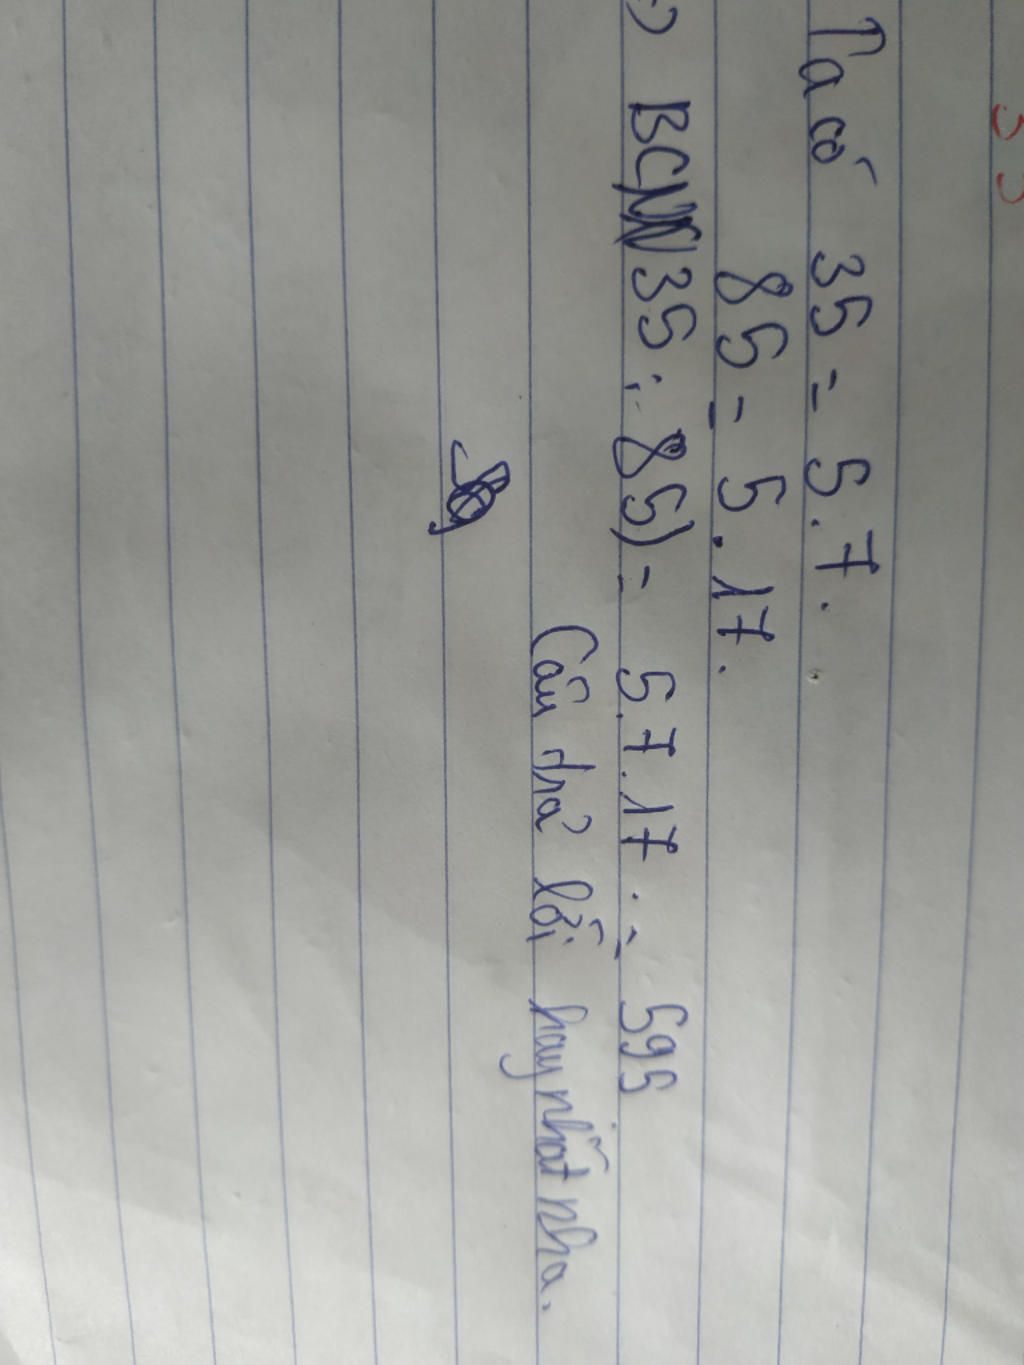 Ta có 35 = 5.7.
85 = 5.17.
=> BCNN 35; 85) = 5.7.17. = 595
Câu trả lời hay nhất nha.